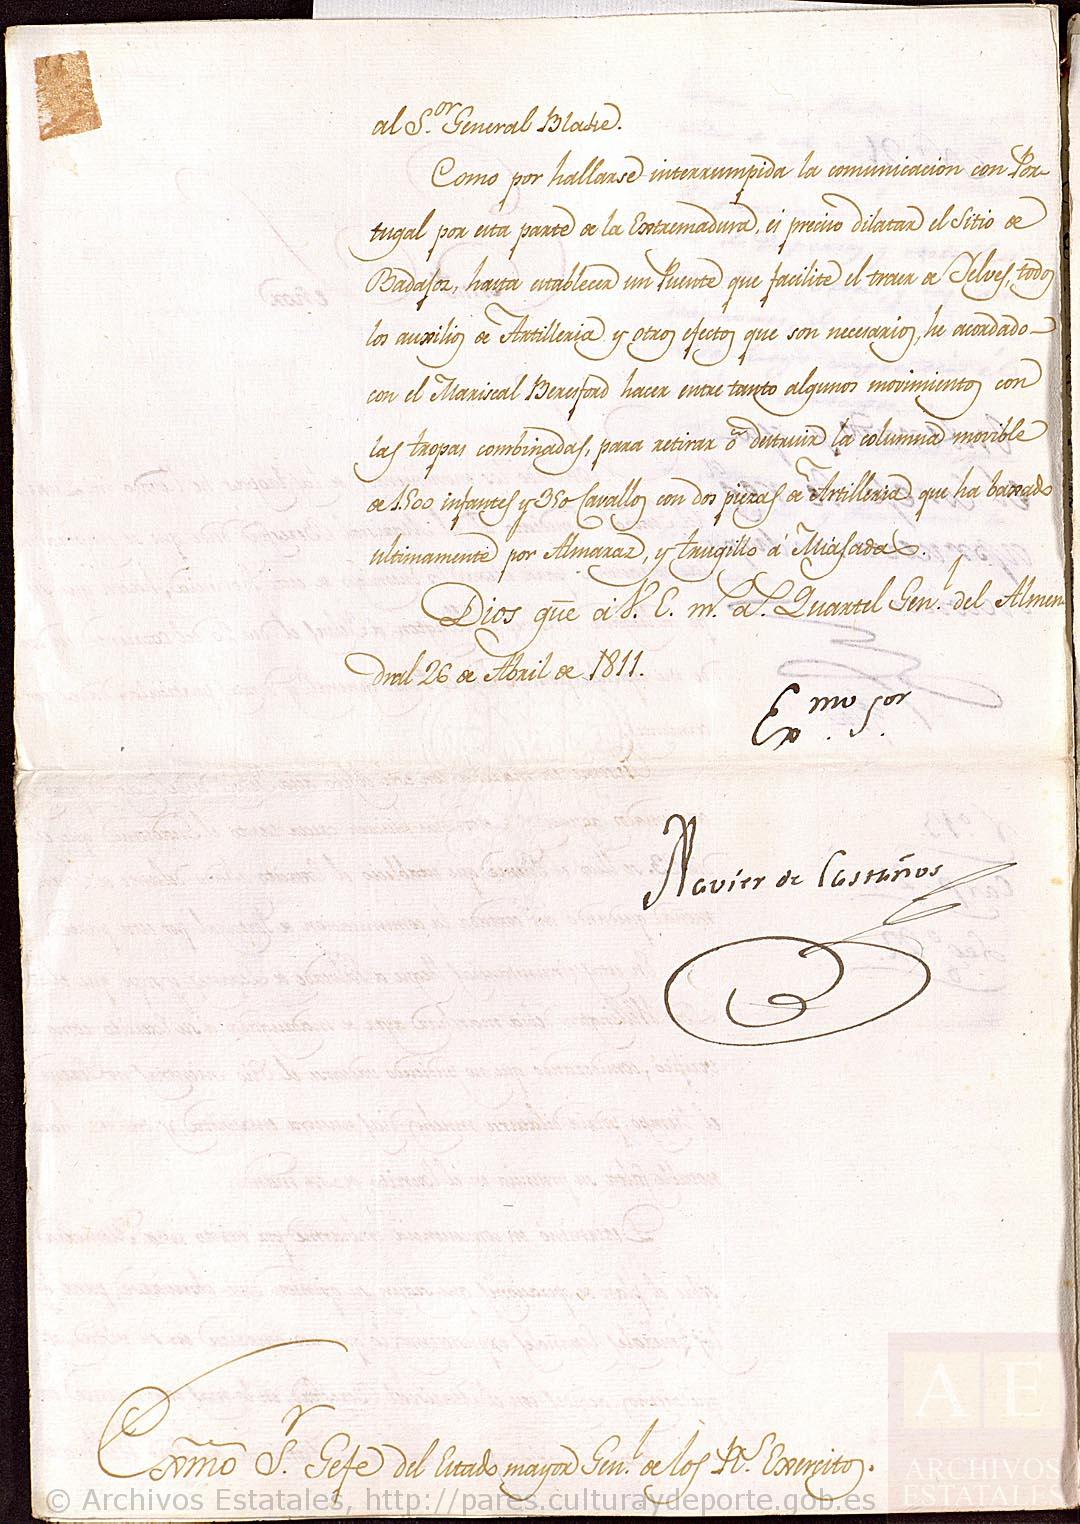 al S.or General Blake.
Como por hallarse interrumpida la comunicacion con Por-
tugal por esta parte de la Extremadura, es preciso dilatar el Sitio de
Badajoz, hasta establecer un Puente que facilite el traer de Yelves, todos
los auxilios de Artilleria y otros efectos que son necesarios, he acordado
con el Mariscal Beresford hacer entre tanto algunos movimientos con
las tropas combinadas, para retirar ó destruir la columna movible
de 1500 infantes y 350 Cavallos con dos piezas de Artilleria que ha baxado
ultimamente por Almaraz, y trugillo á Miasadas.
Dios gūe á V. E. m.s a.s Quartel Gen.l del Almen
dral 26 de Abril de 1811.
Ex.mo S.or
Xavier de Castaños
Exmō S.r Gefe del Estado mayor Gen.l de los R.s Exercitos.
© Archivos Estatales, http://pares.culturaydeporte.gob.es
AE
ARCHIVOS
ESTATALES